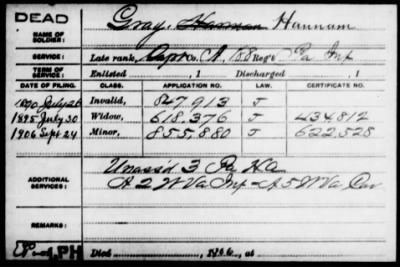 DEAD
NAME OF SOLDIER: Gray, Harman Hannum
SERVICE: Late rank, Capt Co. A, 58 Reg't Pa Inf
TERM OF SERVICE: Enlisted , 1 Discharged , 1
DATE OF FILING. CLASS. APPLICATION NO. LAW. CERTIFICATE NO.
1890 July 26 Invalid, 847,913 J
1895 July 30 Widow, 618,376 J 434,812
1906 Sept 24 Minor, 855,880 J 622,528
ADDITIONAL SERVICES: Unass'd 3 Pa HA
A 2 W Va Inf - A 5 W Va Cav
REMARKS:
PH Died , 1 , at